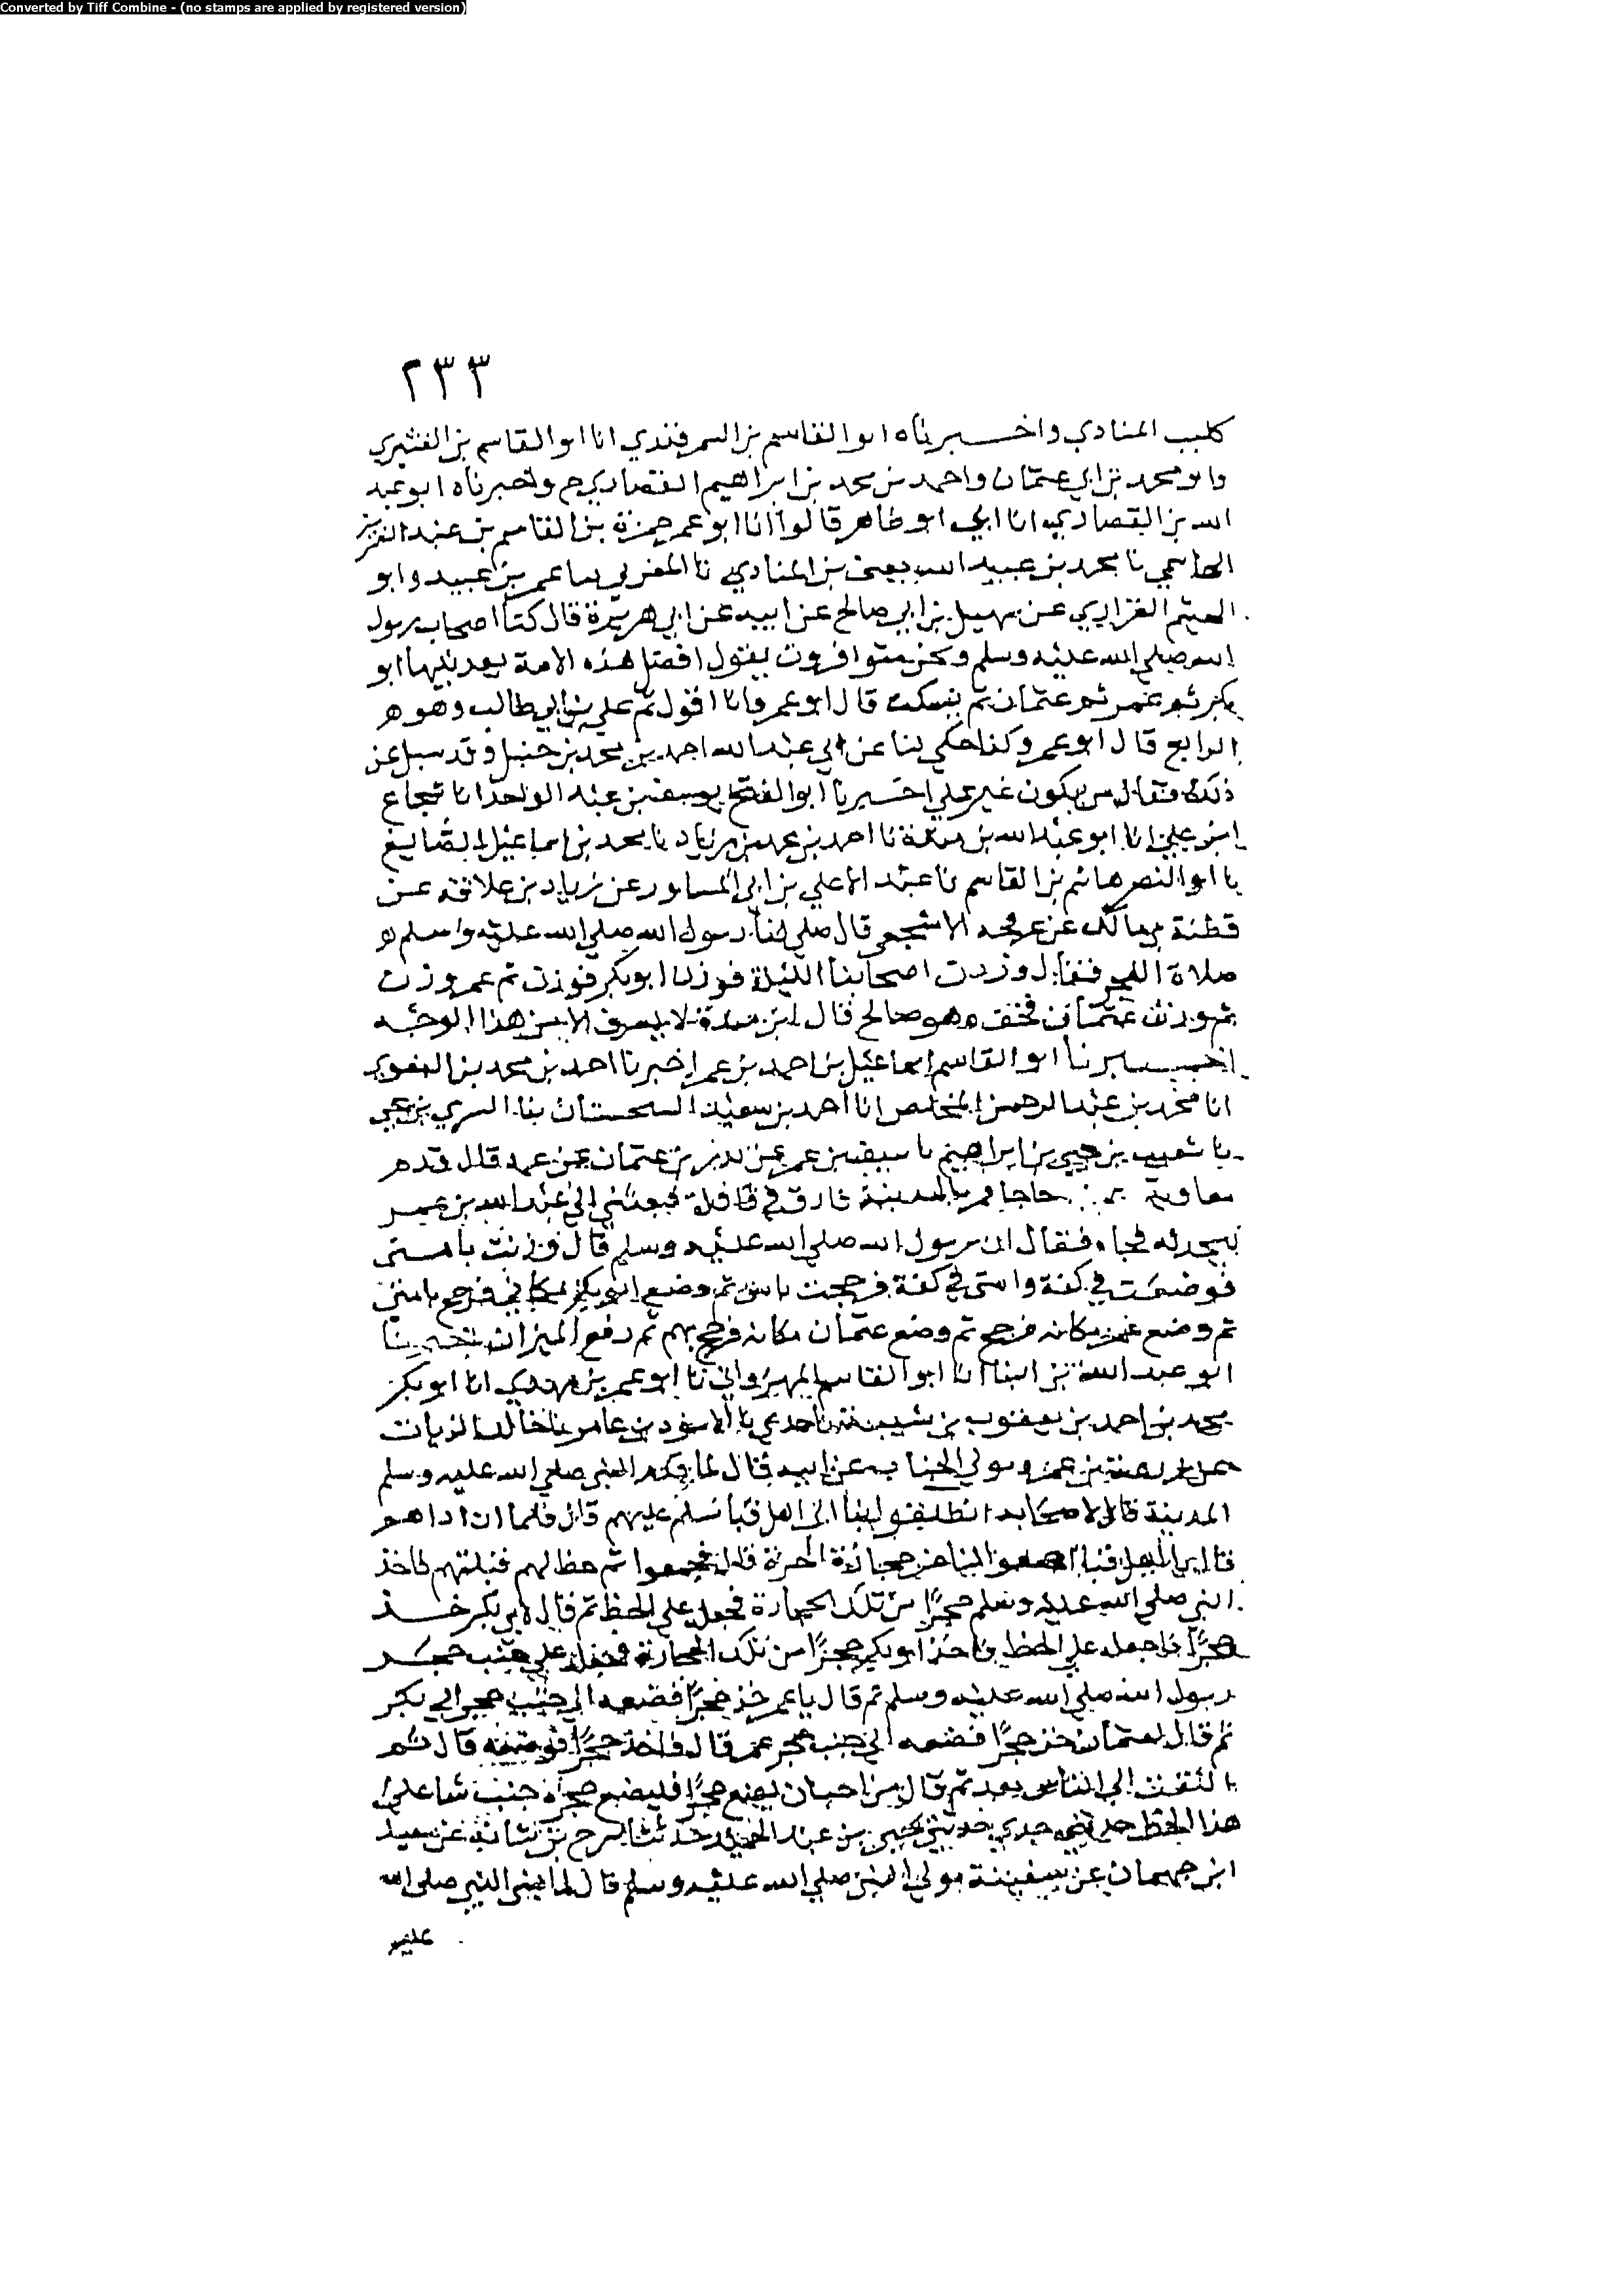 Converted by Tiff Combine - (no stamps are applied by registered version)
٢٣٣
كليب المنادي واخبرناه ابو القاسم بن السمرقندي انا ابو القاسم بن القشيري
وابو محمد بن ابي عثمان واحمد بن محمد بن ابراهيم القصاري ح واخبرناه ابو عبد
الله بن القصاري انا ابي ابو طاهر قالوا انا ابو عمر حمزة بن القاسم بن عبد العزيز
الهاشمي نا محمد بن عبيد الله يعني بن المنادي نا عمر بن عبيد وابو
الهيثم الفزاري عن سهيل بن ابي صالح عن ابيه عن ابي هريرة قال كنا اصحاب رسول
الله صلي الله عليه وسلم ونحن متوافرون يقول افضل هذه الامة بعد نبيها ابو
بكر ثم عمر ثم عثمان ثم نسكت قال ابو عمر وانا اقول ثم علي بن ابي طالب وهو
الرابع قال ابو عمر وكذا حكي لنا عن ابي عبد الله احمد بن محمد بن حنبل وقد سيل عن
ذلك فقال من يكون غير علي اخبرنا ابو الفتح يوسف بن عبد الواحد انا شجاع
ابن علي انا ابو عبد الله بن مندة نا احمد بن محمد بن زياد نا محمد بن اسماعيل الصايغ
نا ابو النصر هاشم بن القاسم نا عبد الاعلي بن ابي المساور عن زياد بن علاقة عن
قطبة بن مالك عن عرفجه الاشجعي قال صلي لنا رسول الله صلي الله عليه وسلم
صلاة الفجر فقال وزن اصحابنا الليلة فوزن ابو بكر فوزن ثم عمر وزن
ثم وزن عثمان فخف وهو صالح قال ابن مندة لا يعرف الا من هذا الوجه
اخبرنا ابو القاسم اسماعيل بن احمد بن عمر اخبرنا احمد بن محمد بن النقور
انا محمد بن عبد الرحمن المخلص انا احمد بن سعيد السجستاني نا السري بن يحيي
نا شعيب بن ابراهيم نا سيف بن عمر عن بدر بن عثمان عن عمه قال قدم
معاوية حاجا فمر بالمدينة في قافلة فبعثني الي عبد الله بن عمر
ليحدثه فجاه فقال ان رسول الله صلي الله عليه وسلم قال وزنت بامتي
فوضعت في كفة وامتي في كفة فرجحت بامتي ثم وضع ابو بكر مكاني فرجح بامتي
ثم وضع عمر مكانه فرجح ثم وضع عثمان مكانه فرجح بهم ثم رفع الميزان اخبرنا
ابو عبد الله بن البنا انا ابو القاسم المهرواني نا ابو عمر بن مهدي انا ابو بكر
محمد بن احمد بن يعقوب بن شيبة نا جدي نا الاسود بن عامر نا خالد الزيات
عن زرعة بن عمرو مولي الحباب عن ابيه قال لما قدم النبي صلي الله عليه وسلم
المدينة قال لاصحابه انطلقوا بنا الي اهل قبا نسلم عليهم قال فلما ان اتاهم
قال يا اهل قبا اجمعوا لنا من حجارة الحرة قال فجمعوا ثم خط لهم قبلتهم فاخذ
النبي صلي الله عليه وسلم حجرًا من تلك الحجارة فجعله علي الخط ثم قال لابي بكر خذ
حجرًا فاجعله علي الخط فاخذ ابو بكر حجرًا من تلك الحجارة فجعله علي جنب حجر
رسول الله صلي الله عليه وسلم ثم قال يا عمر خذ حجرًا فضعه الي جنب حجر ابي بكر
ثم قال لعثمان خذ حجرًا فضعه الي جنب حجر عمر قال فاخذ حجرًا فوضعه قال ثم
التفت الي الناس بعد ثم قال من احب ان يضع حجرًا فليضع حجره حيث شا علي
هذا الخط حدثني جدي حدثني يحيي بن عبد الحميد حدثنا حشرج بن نباتة عن سعيد
ابن جهمان عن سفينة مولي النبي صلي الله عليه وسلم قال لما بني النبي صلي الله
عليه